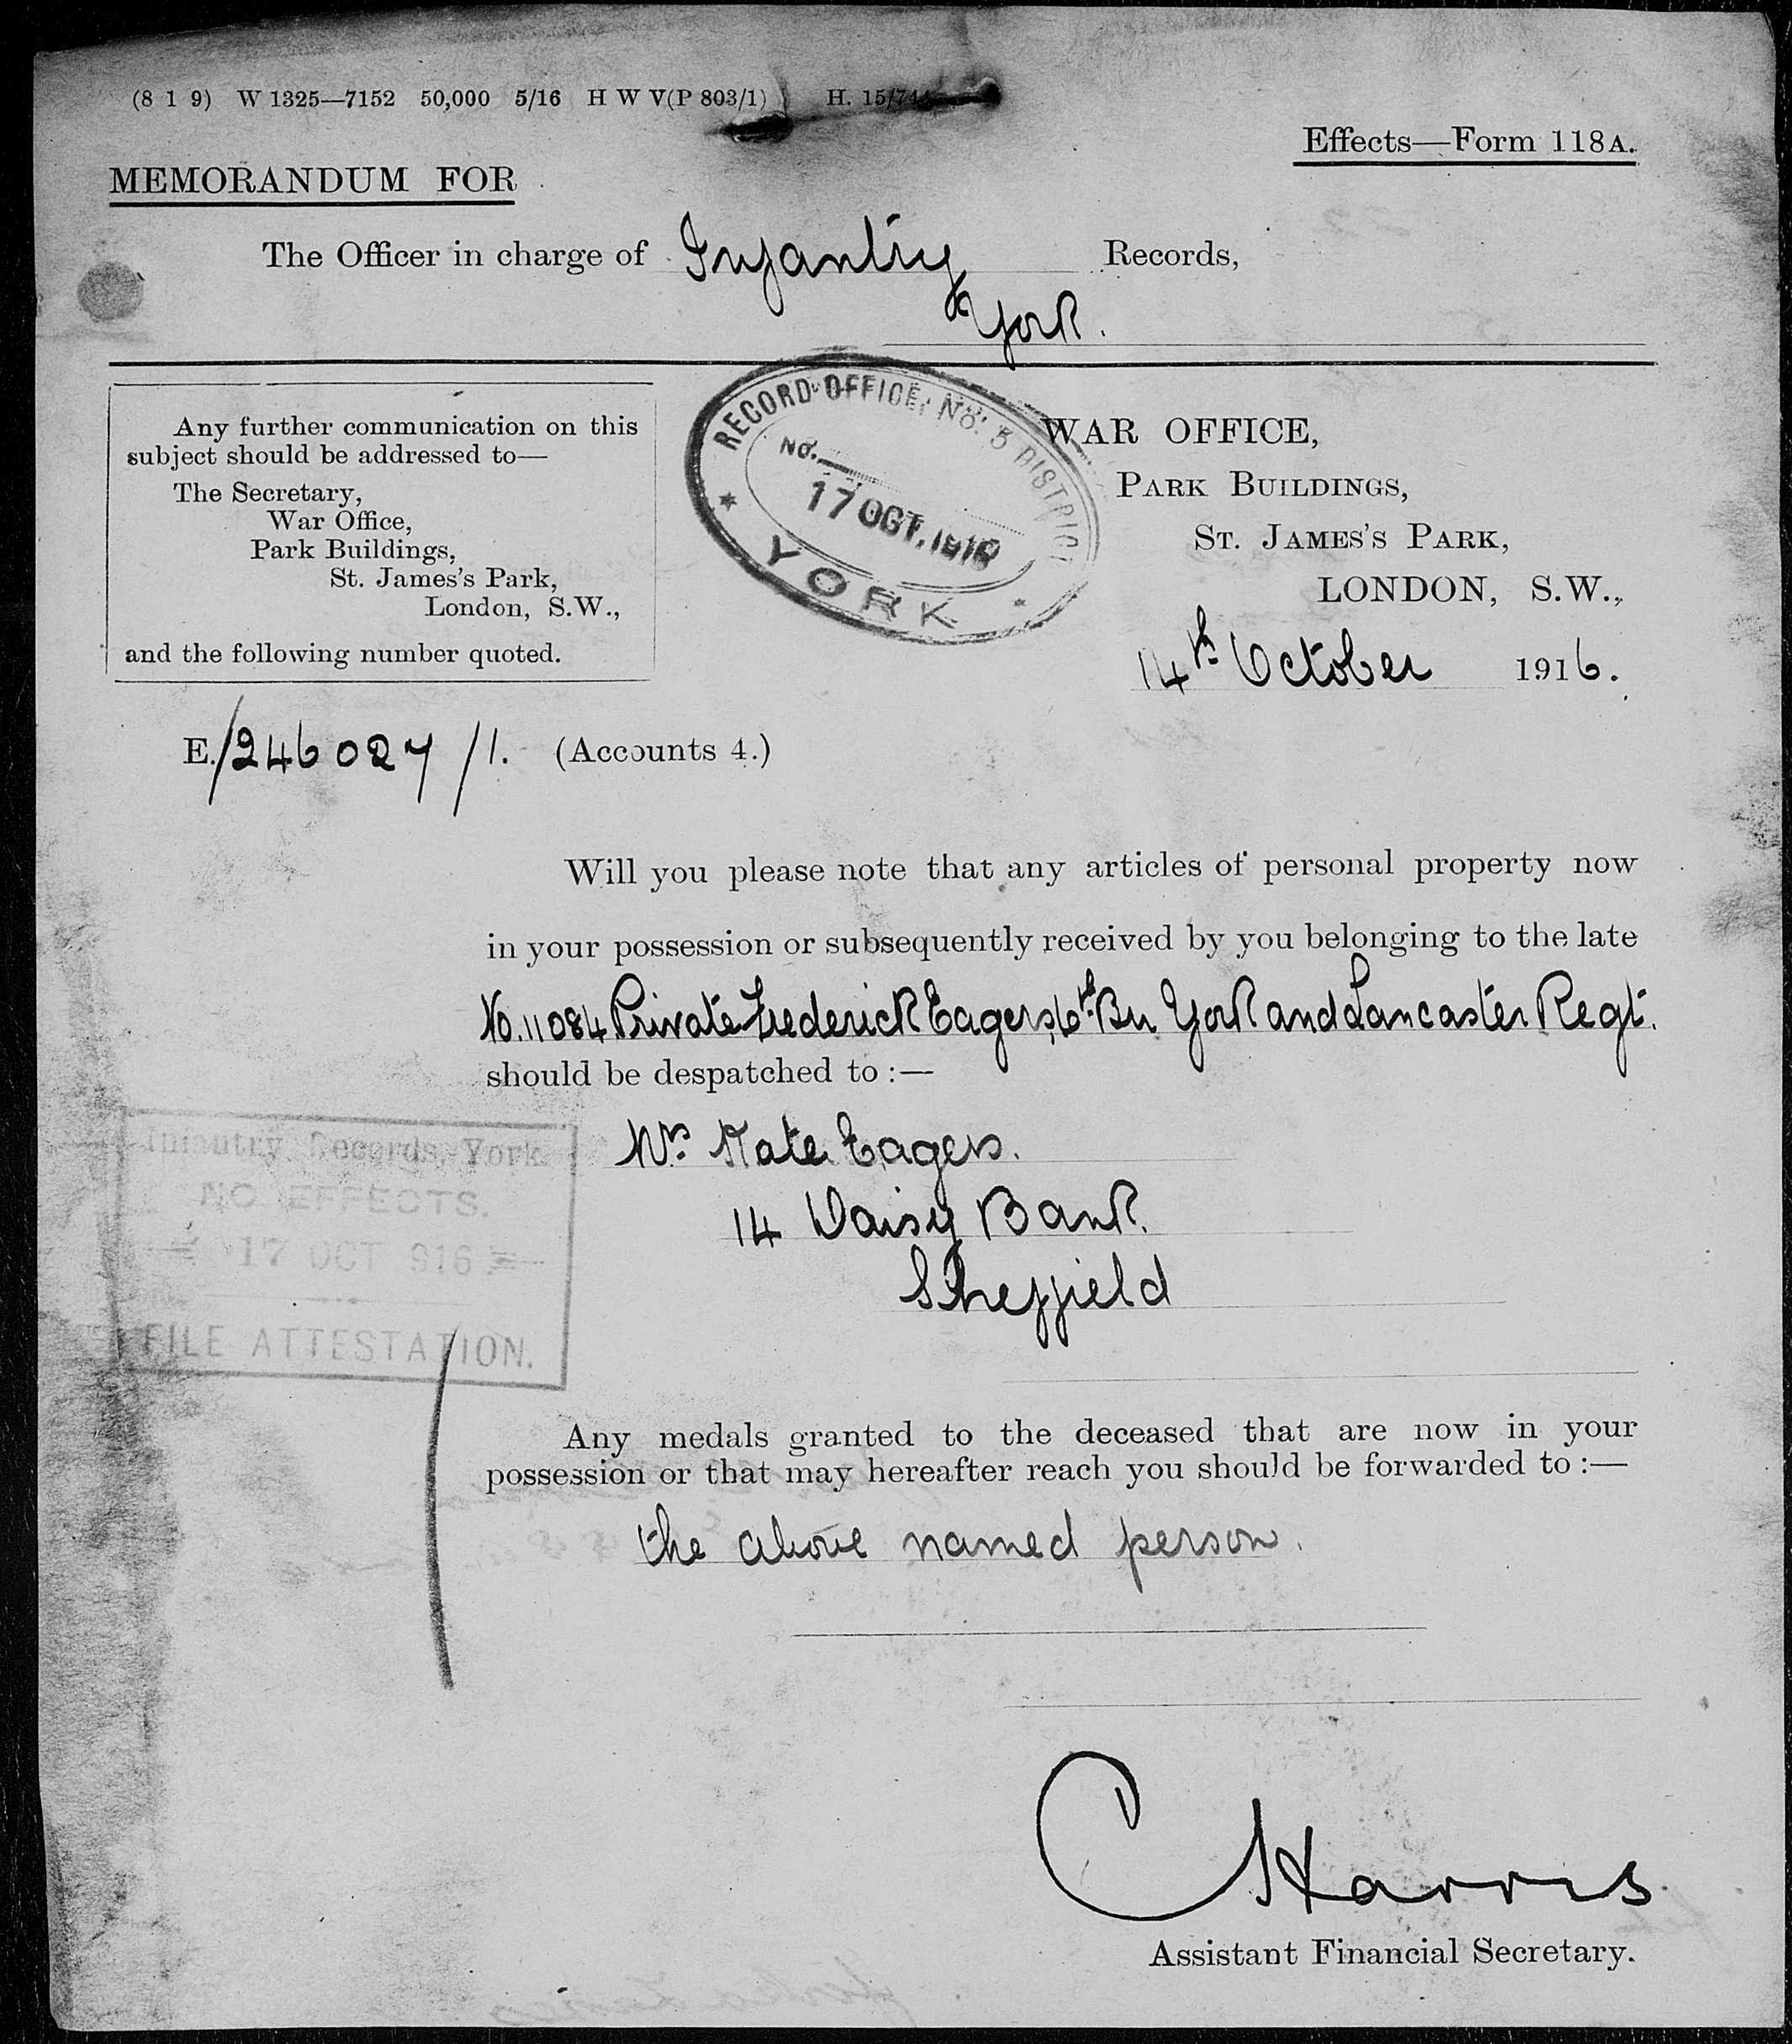 (8 1 9) W 1325—7152 50,000 5/16 H W V(P 803/1) H. 15/74
Effects—Form 118A.
MEMORANDUM FOR
The Officer in charge of Infantry Records,
York.
Any further communication on this
subject should be addressed to—
The Secretary,
War Office,
Park Buildings,
St. James's Park,
London, S.W.,
and the following number quoted.
RECORD OFFICE, No. 5 DISTRICT
No.
17 OCT. 1916
YORK
WAR OFFICE,
PARK BUILDINGS,
ST. JAMES'S PARK,
LONDON, S.W.,
14th October 1916.
E./246027/1. (Accounts 4.)
Will you please note that any articles of personal property now
in your possession or subsequently received by you belonging to the late
No. 11084 Private Frederick Eagers, 6th Bn York and Lancaster Regt.
should be despatched to :—
Mrs Kate Eagers.
14 Daisy Bank.
Sheffield
Infantry Records, York
NO EFFECTS.
17 OCT 916
FILE ATTESTATION.
Any medals granted to the deceased that are now in your
possession or that may hereafter reach you should be forwarded to :—
the above named person.
C Harris
Assistant Financial Secretary.